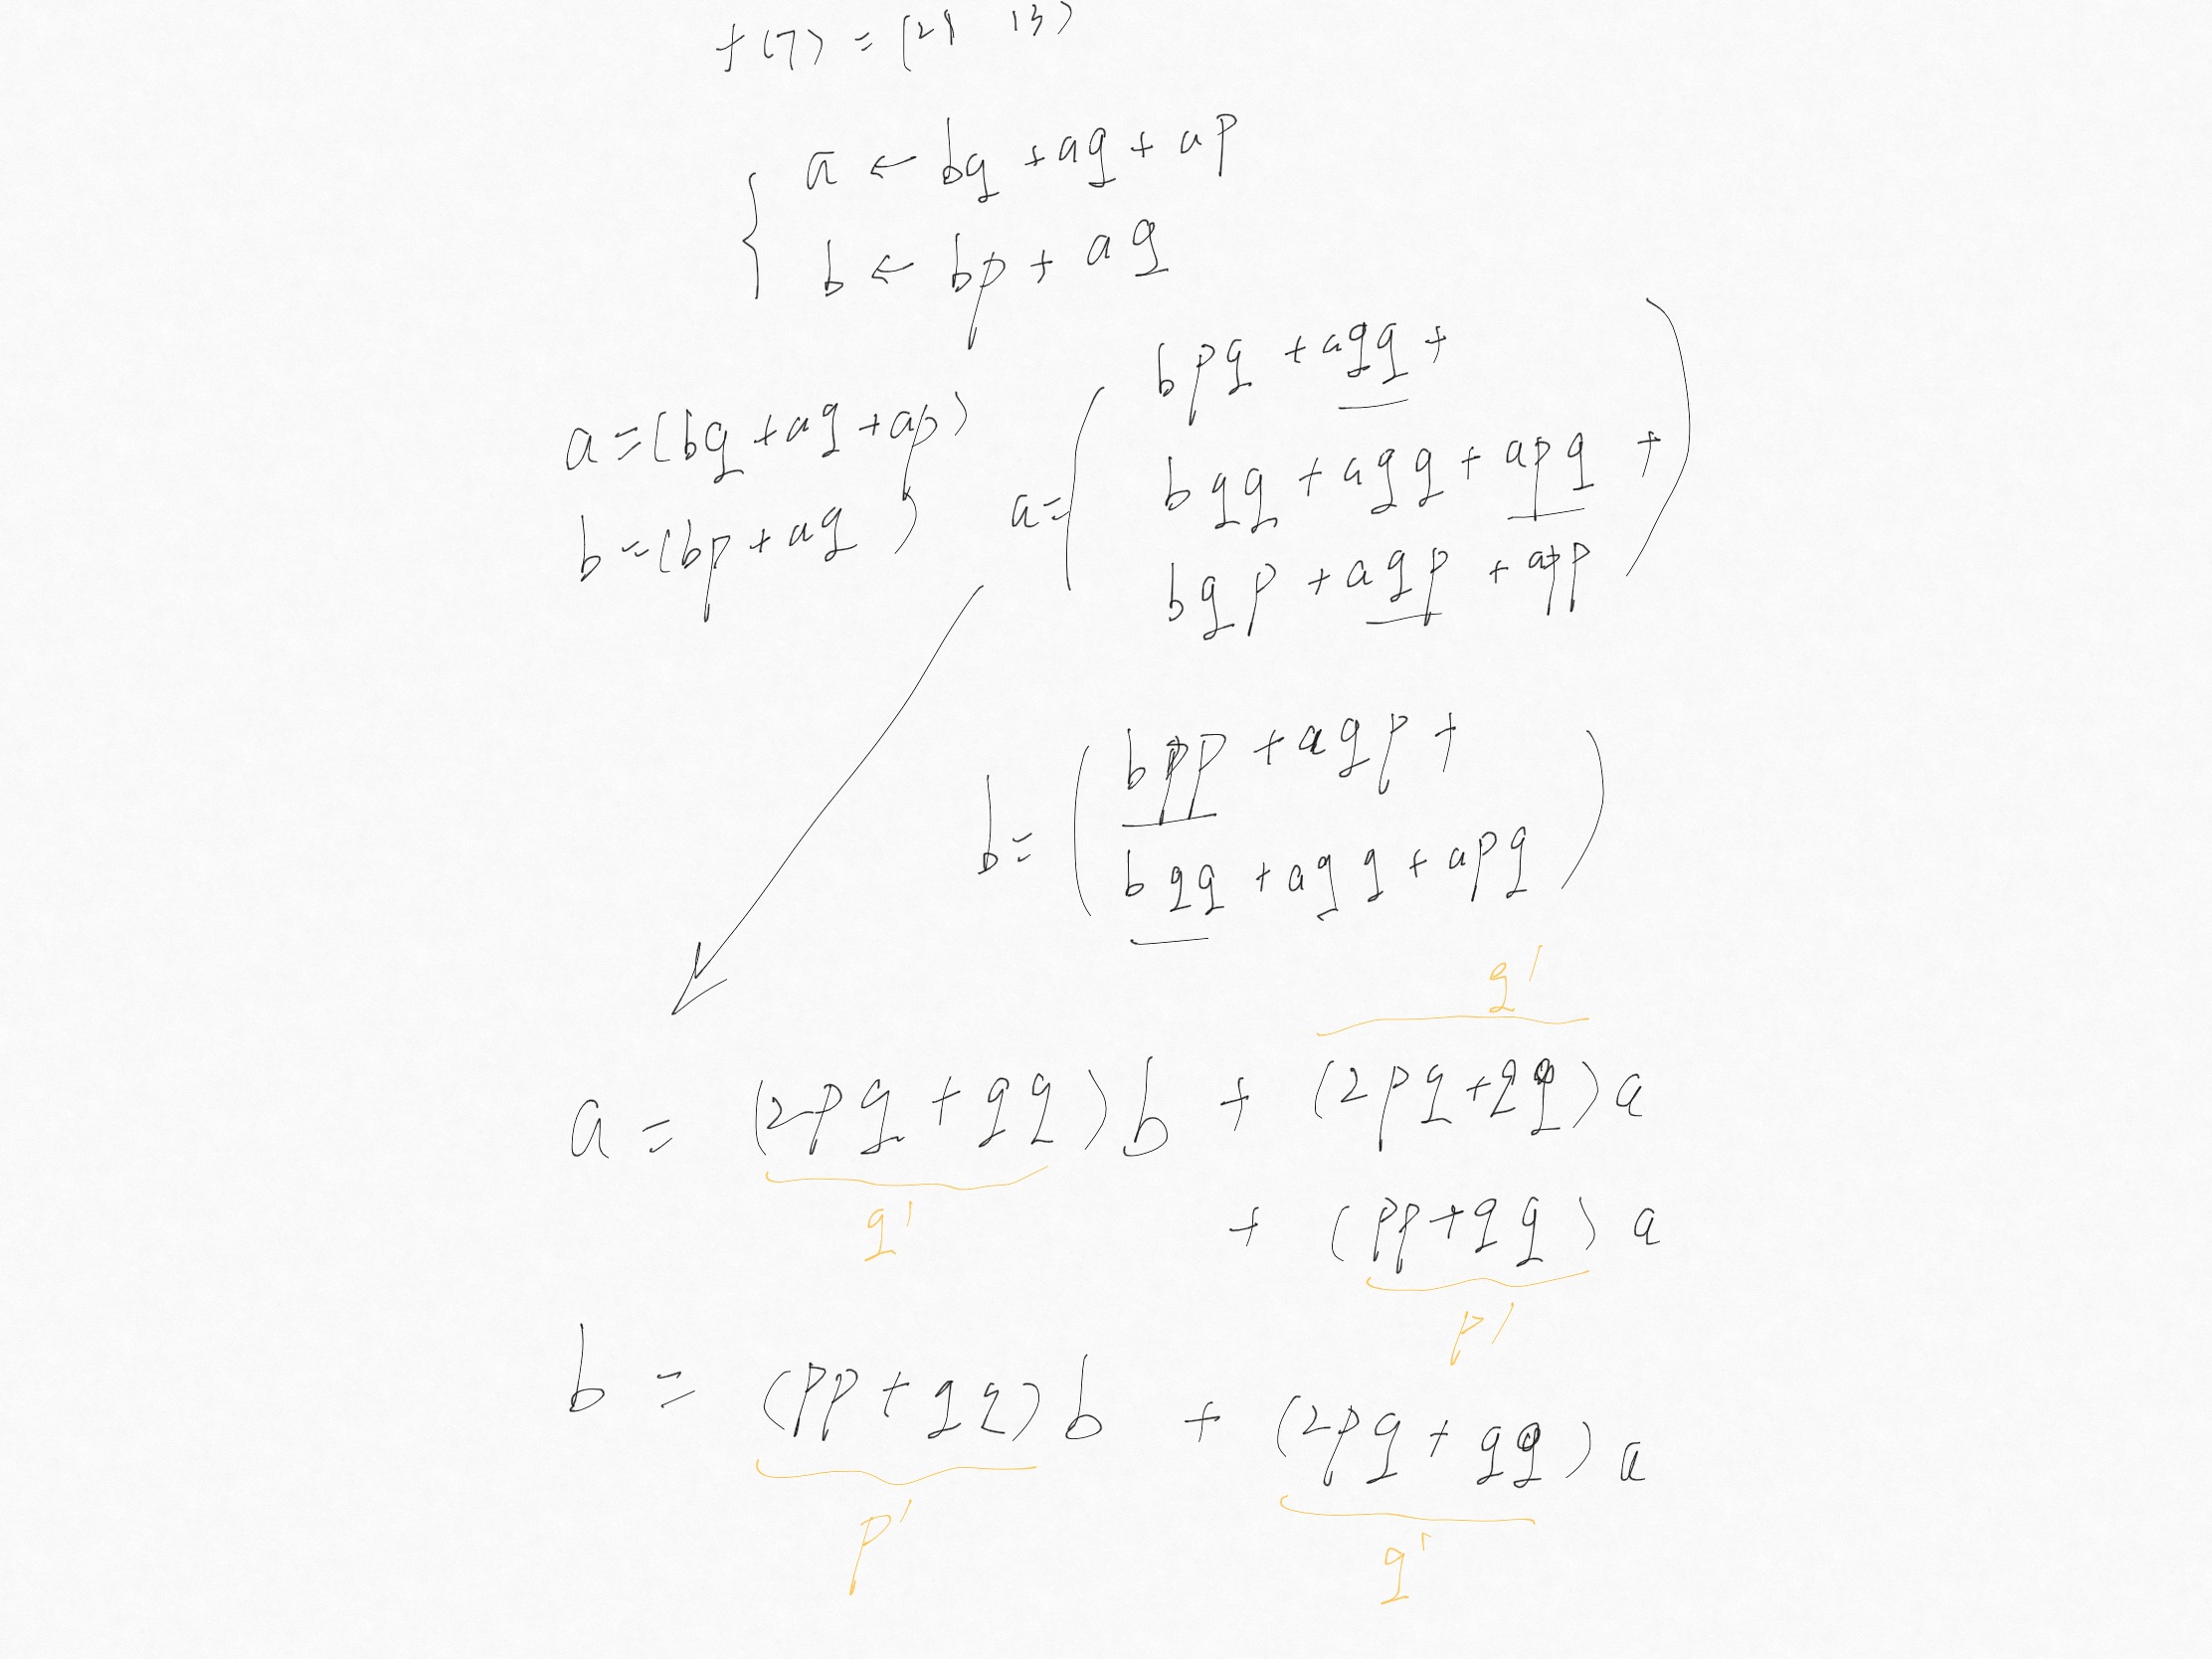 f(7) = (21 13)
a ← bq + aq + ap
b ← bp + aq
a = (bq + aq + ap)
b = (bp + aq)
a = (bpq + aqq +
bqq + aqq + apq +
bqp + aqp + app)
b = (bpp + aqp +
bqq + aqq + apq)
q'
a = (2pq + qq)b + (2pq + qq)a
q'
+ (pp + qq)a
p'
b = (pp + qq)b + (2pq + qq)a
p'
q'